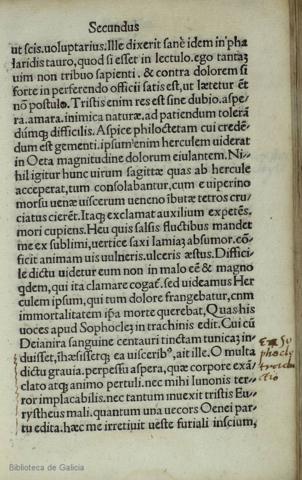 Secundus
ut scis.uoluptarius.Ille dixerit sanè idem in pha
laridis tauro, quod si esset in lectulo.ego tantaʒ
uim non tribuo sapienti. & contra dolorem si
forte in perferendo officii satis est, ut lætetur ēt
nō postulo. Tristis enim res est sine dubio.aspe/
ra.amara.inimica naturæ.ad patiendum tolerā
dūmqʒ difficilis. Aspice philoctetam cui crede/
dum est gementi. ipsum enim herculem uiderat
in Oeta magnitudine dolorum eiulantem. Ni/
hil igitur hunc uirum sagittæ quas ab hercule
acceperat, tum consolabantur, cum e uiperino
morsu uenæ uiscerum ueneno ibutæ tetros cru/
ciatus cierēt. Itaqʒ exclamat auxilium expetēs.
mori cupiens. Heu quis salsis fluctibus mandet
me ex sublimi, uertice saxi iamiaʒ absumor. cō/
ficit animam uis uulneris.ulceris æstus. Diffici/
le dictu uidetur eum non in malo eē & magno
qdem, qui ita clamare cogaf. sed uideamus Her
culem ipsum, qui tum dolore frangebatur, cnm
immortalitatem ipsa morte querebat, Quas his
uoces apud Sophoclez in trachinis edit. Cui cū
Deianira sanguine centauri tinctam tunicaʒ in/
duisset, ihæsissetqʒ ea uiscerib9, ait ille. O multa
dictu grauia. perpessu aspera, quæ corpore exā/
clato atqʒ animo pertuli. nec mihi Iunonis ter/
ror implacabilis. nec tantum inuexit tristis Eu/
rystheus mali. quantum una uecors Oenei par/
tu edita. hæc me irretiuit ueste furiali inscium,
Ex So
phocle
Biblioteca de Galicia